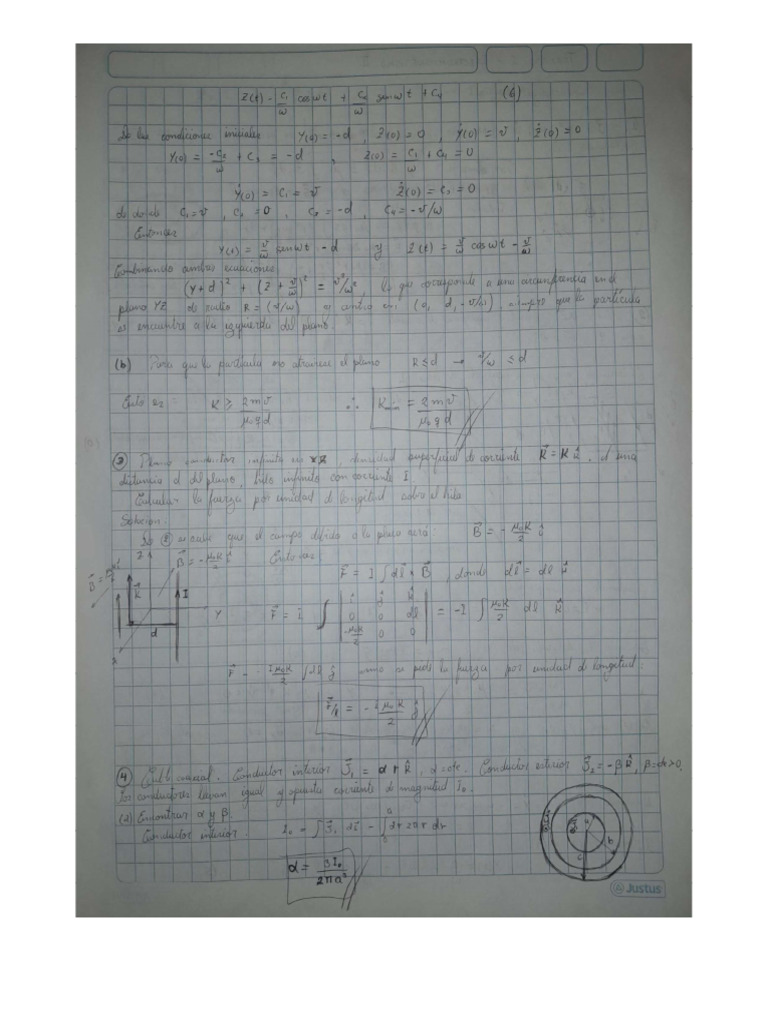 Z(t) = C₁/ω cos ωt + C₂/ω sen ωt + C₄ (6)
De las condiciones iniciales Y(0) = -d, Z(0) = 0, Ẏ(0) = v, Ż(0) = 0
Y(0) = -C₂/ω + C₃ = -d , Z(0) = C₁/ω + C₄ = 0
Ẏ(0) = C₁ = v Ż(0) = C₂ = 0
de donde C₁ = v, C₂ = 0, C₃ = -d, C₄ = -v/ω
Entonces
Y(t) = v/ω sen ωt - d y Z(t) = v/ω cos ωt - v/ω
Combinando ambas ecuaciones
(Y + d)² + (Z + v/ω)² = v²/ω², lo que corresponde a una circunferencia en el
plano YZ de radio R = (v/ω) y centro en (0, d, -v/ω), que la partícula
se encuentre a la izquierda del plano.
(b) Para que la partícula no atraviese el plano R ≤ d → v/ω ≤ d
Esto es K ≥ 2mv/μ₀qd ∴ Kmín = 2mv/μ₀qd
③ Plano conductor infinito en YZ, densidad superficial de corriente K⃗ = K k̂, a una
distancia d del plano, hilo infinito con corriente I.
Calcular la fuerza por unidad de longitud sobre el hilo
Solución.
De ② se sabe que el campo debido a la placa será: B⃗ = -μ₀K/2 î
Z B⃗ = -μ₀K/2 î Entonces
F⃗ = I ∫ dl⃗ × B⃗, donde dl⃗ = dl k̂
K⃗ I Y d x
F⃗ = I ∫ | î ĵ k̂ | 0 0 dl | -μ₀K/2 0 0 | = -I ∫ μ₀K/2 dl k̂
F⃗ = -Iμ₀K/2 ∫ dl ĵ como se pide la fuerza por unidad de longitud
F⃗/l = -I μ₀K/2 ĵ
④ Cable coaxial. Conductor interior J⃗₁ = α r k̂, α = cte. Conductor exterior J⃗₂ = -β k̂, β = cte > 0.
Los conductores llevan igual y opuesta corriente de magnitud I₀.
(a) Encontrar α y β.
Conductor interior I₀ = ∫ J⃗₁ ds⃗ = ∫₀ᵃ αr 2πr dr
α = 3I₀/2πa³
a b c
Justus